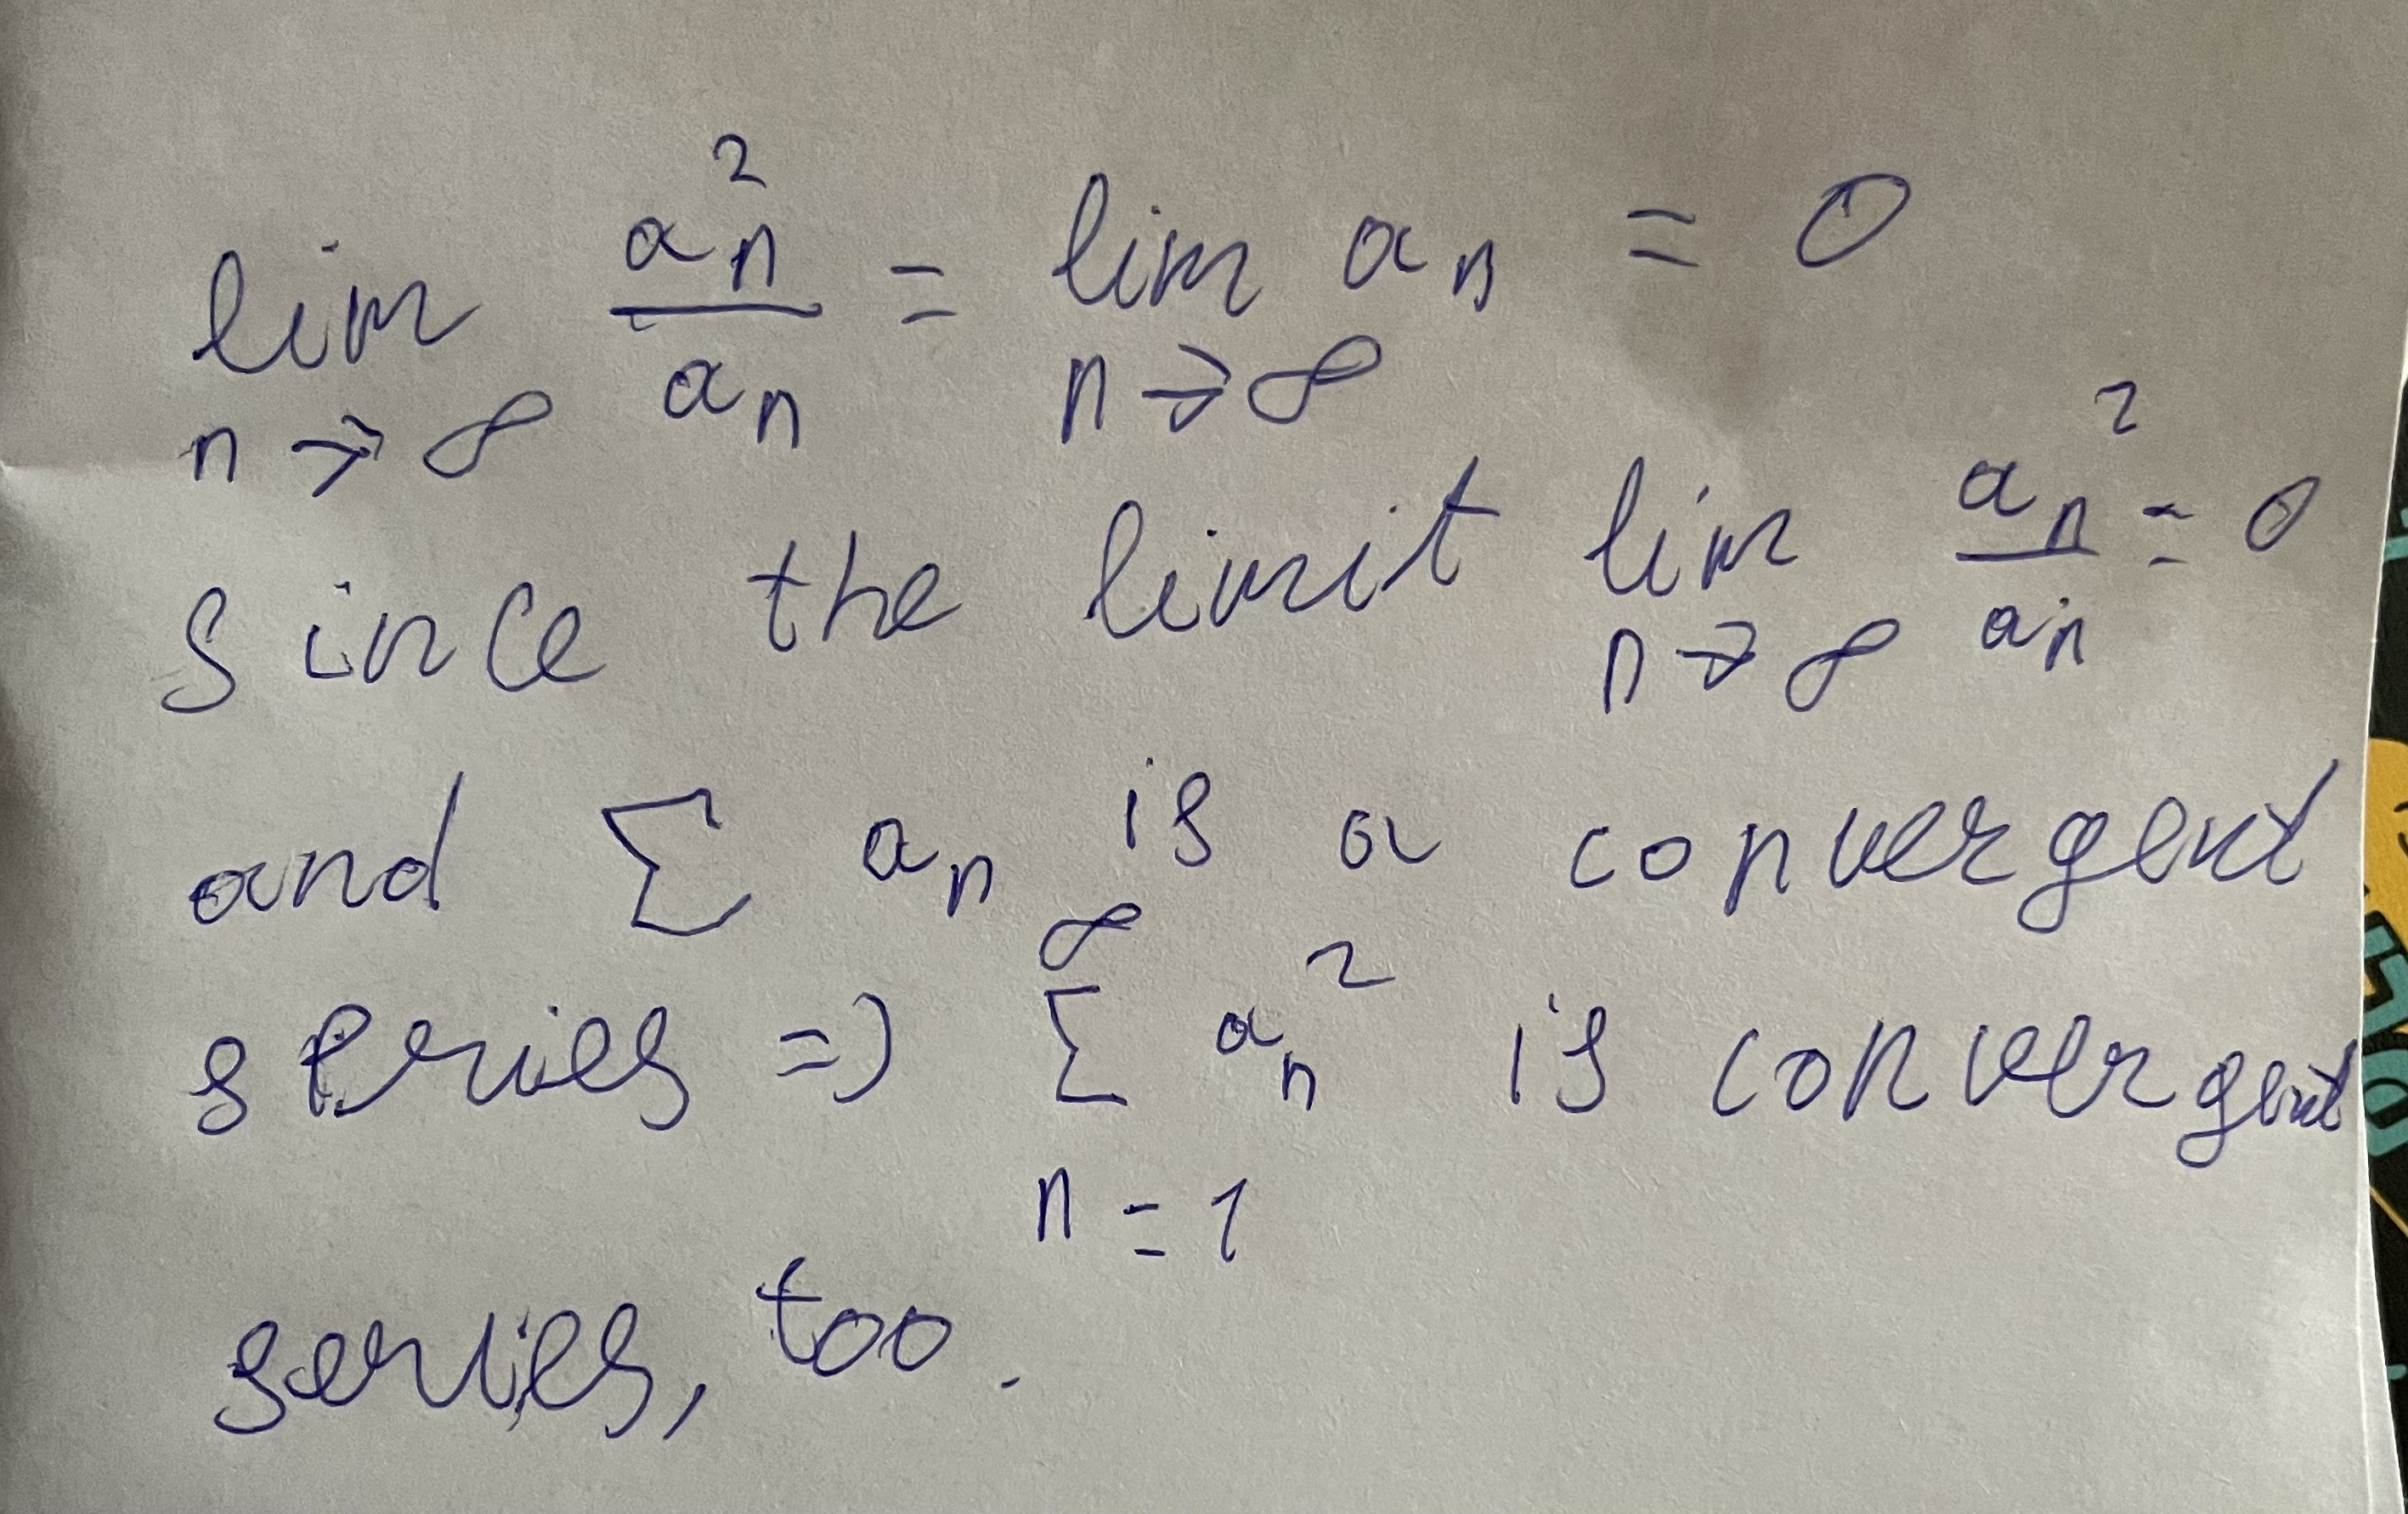 lim n→∞ a_n^2 / a_n = lim n→∞ a_n = 0
since the limit lim n→∞ a_n^2 / a_n = 0
and Σ a_n is a convergent
series => Σ_{n=1}^{∞} a_n^2 is convergent
series, too.